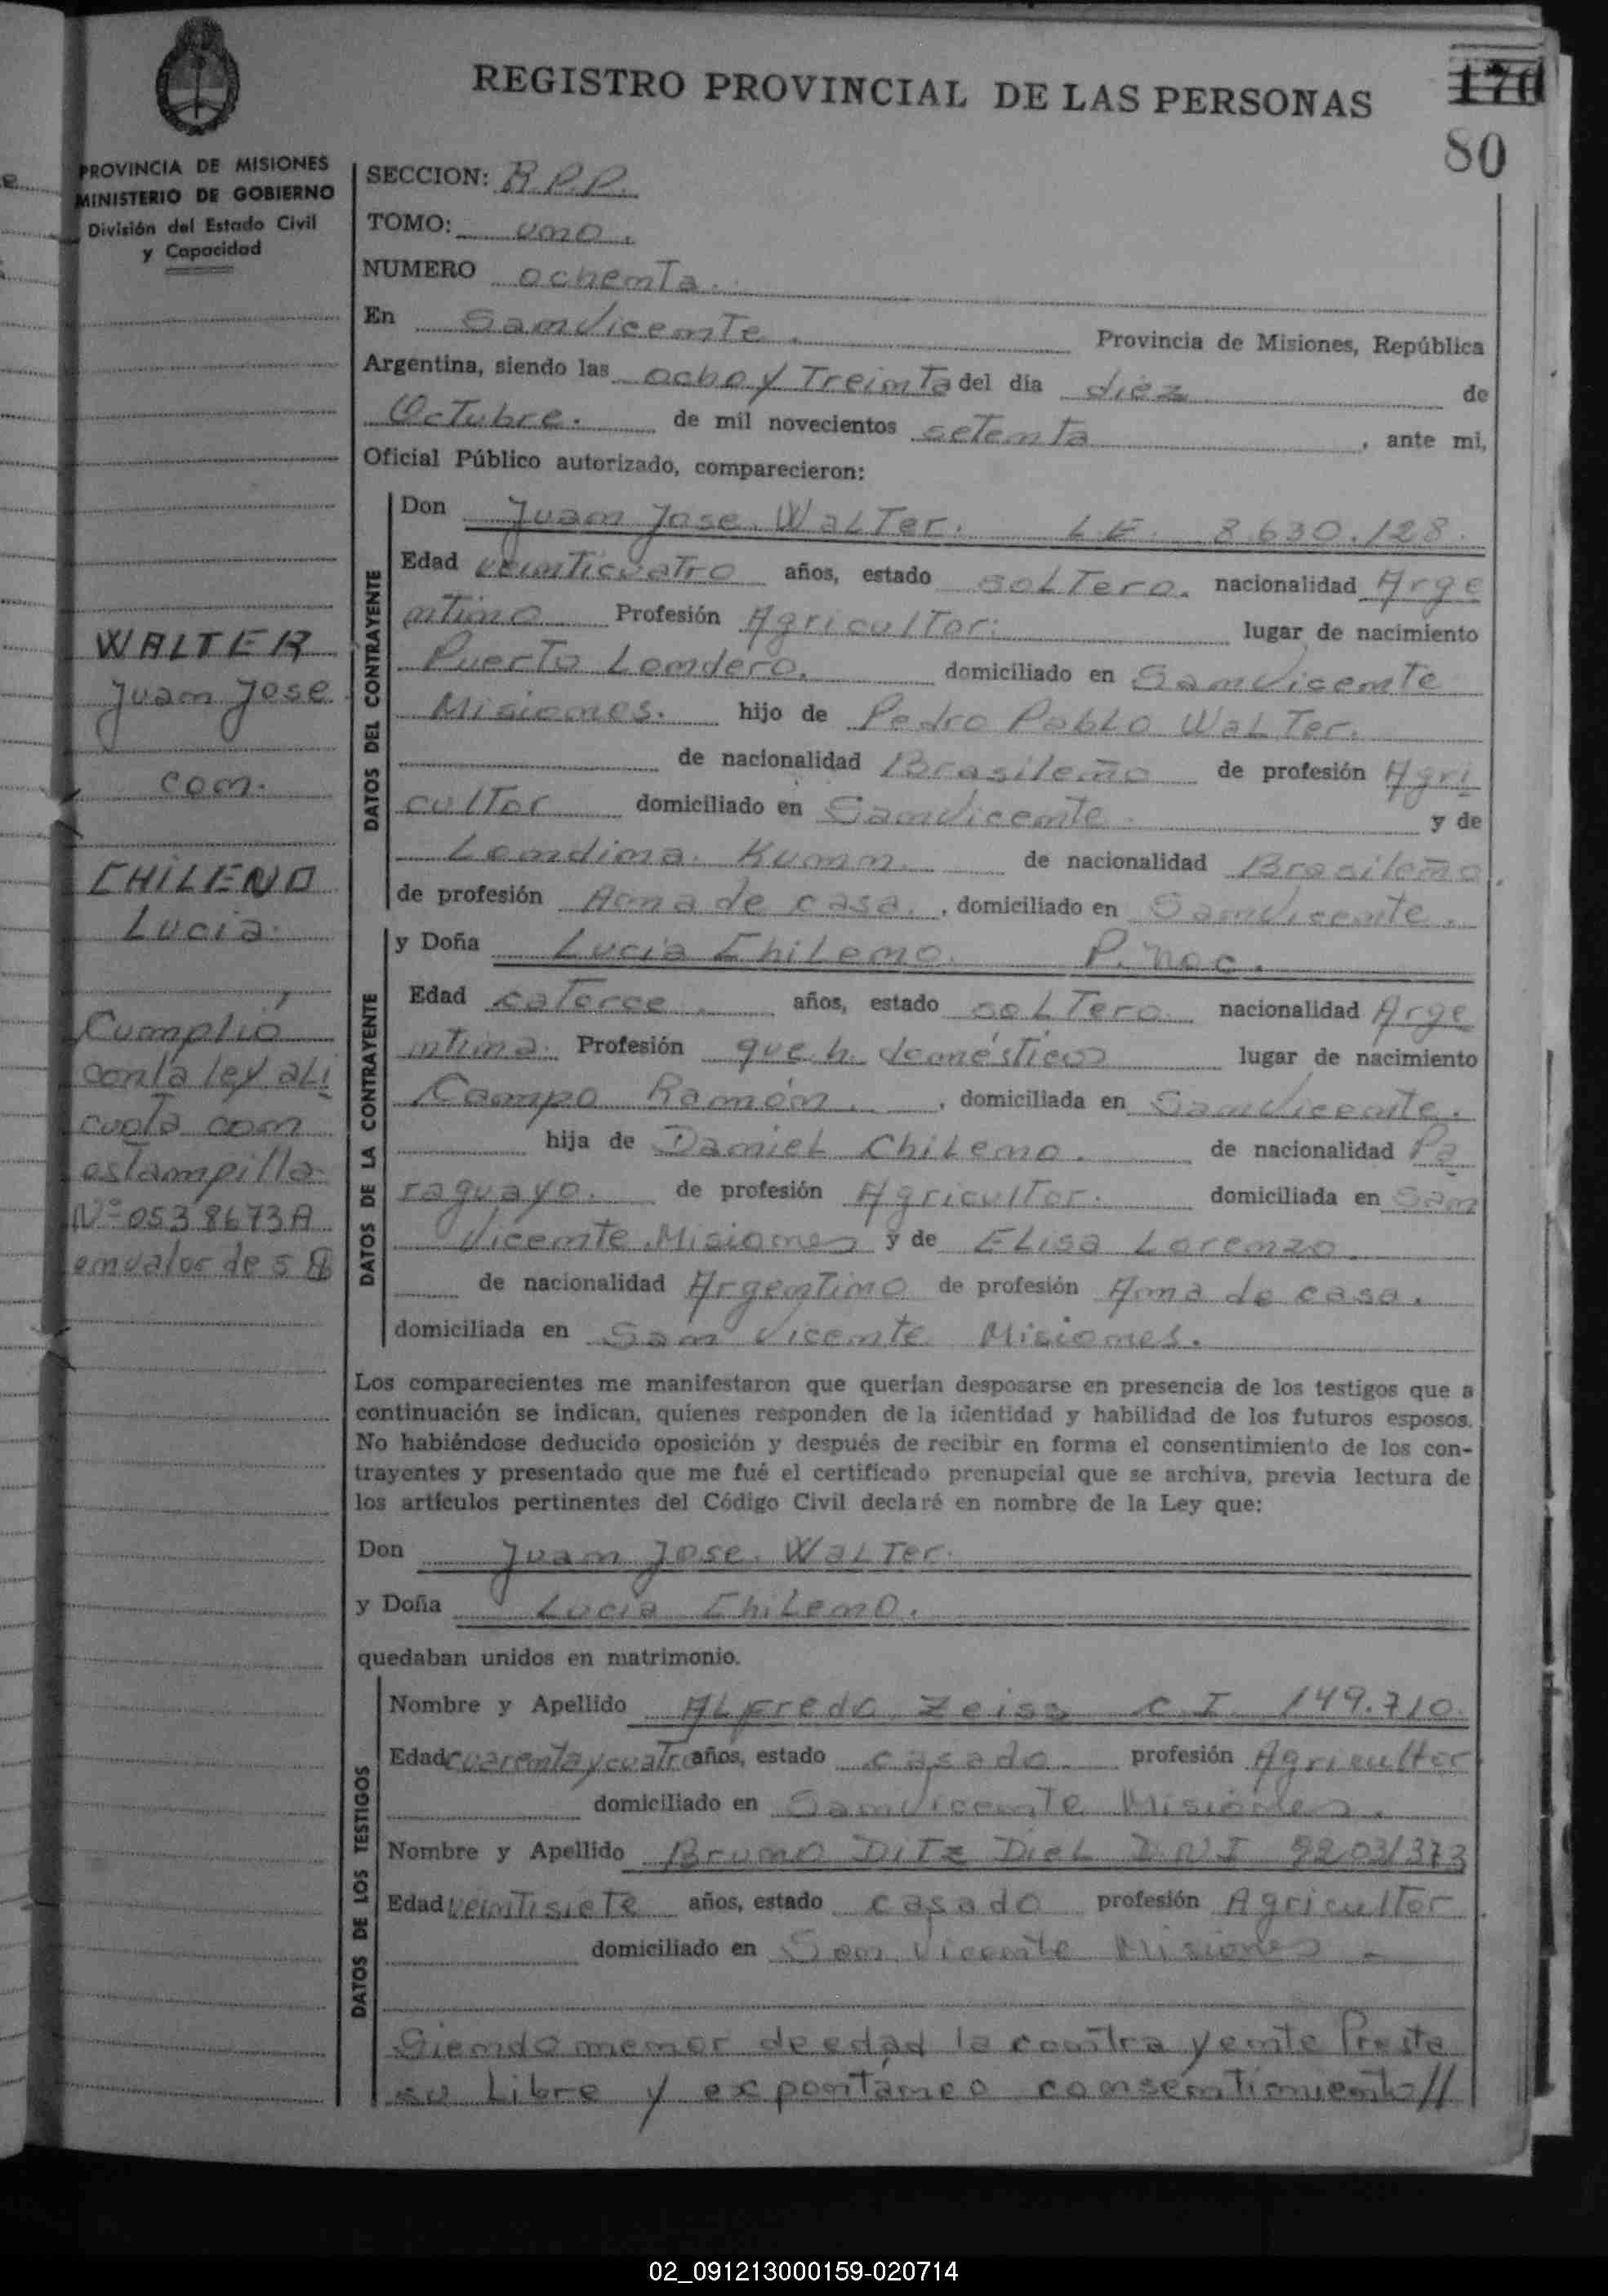 REGISTRO PROVINCIAL DE LAS PERSONAS
170
80
PROVINCIA DE MISIONES
MINISTERIO DE GOBIERNO
División del Estado Civil
y Capacidad
SECCION: R.P.P.
TOMO: uno.
NUMERO ochenta.
En San Vicente. Provincia de Misiones, República
Argentina, siendo las ocho y Treinta del día diez de
Octubre. de mil novecientos setenta, ante mi,
Oficial Público autorizado, comparecieron:
DATOS DEL CONTRAYENTE
Don Juan Jose Walter. L.E. 8.630.128.
Edad veinticuatro años, estado solTero. nacionalidad Arge
ntino Profesión Agricultor. lugar de nacimiento
Puerto Londero. domiciliado en San Vicente
Misiones. hijo de Pedro Pablo Walter.
de nacionalidad Brasileño de profesión Agri
cultor domiciliado en San Vicente. y de
Londina Kumm. de nacionalidad Brasileño.
de profesión Ama de casa., domiciliado en San Vicente.
y Doña Lucia Chileno. P. Noc.
DATOS DE LA CONTRAYENTE
Edad catorce. años, estado solTero nacionalidad Arge
ntina. Profesión que h. domésticos lugar de nacimiento
Campo Ramón., domiciliada en San Vicente.
hija de Daniel Chileno. de nacionalidad Pa
raguayo. de profesión Agricultor. domiciliada en San
Vicente Misiones y de Elisa Lorenzo.
de nacionalidad Argentino de profesión Ama de casa.
domiciliada en San Vicente Misiones.
Los comparecientes me manifestaron que querían desposarse en presencia de los testigos que a
continuación se indican, quienes responden de la identidad y habilidad de los futuros esposos.
No habiéndose deducido oposición y después de recibir en forma el consentimiento de los con-
trayentes y presentado que me fué el certificado prenupcial que se archiva, previa lectura de
los artículos pertinentes del Código Civil declaré en nombre de la Ley que:
Don Juan Jose Walter.
y Doña Lucia Chileno.
quedaban unidos en matrimonio.
DATOS DE LOS TESTIGOS
Nombre y Apellido Alfredo Zeiss C.I. 149.710.
Edad cuarenta y cuatro años, estado casado profesión Agricultor
domiciliado en San Vicente Misiones.
Nombre y Apellido Bruno Ditz Diel D.N.I 92031373
Edad veintisiete años, estado casado profesión Agricultor
domiciliado en San Vicente Misiones -
Siendo menor de edad la contra yente Presta
su Libre y expontáneo consentimiento//
WALTER
Juan Jose
con.
CHILENO
Lucia.
Cumplió
con la ley ali
cuota con
estampilla
Nº 0538673A
en valor de 5 $
02_091213000159-020714